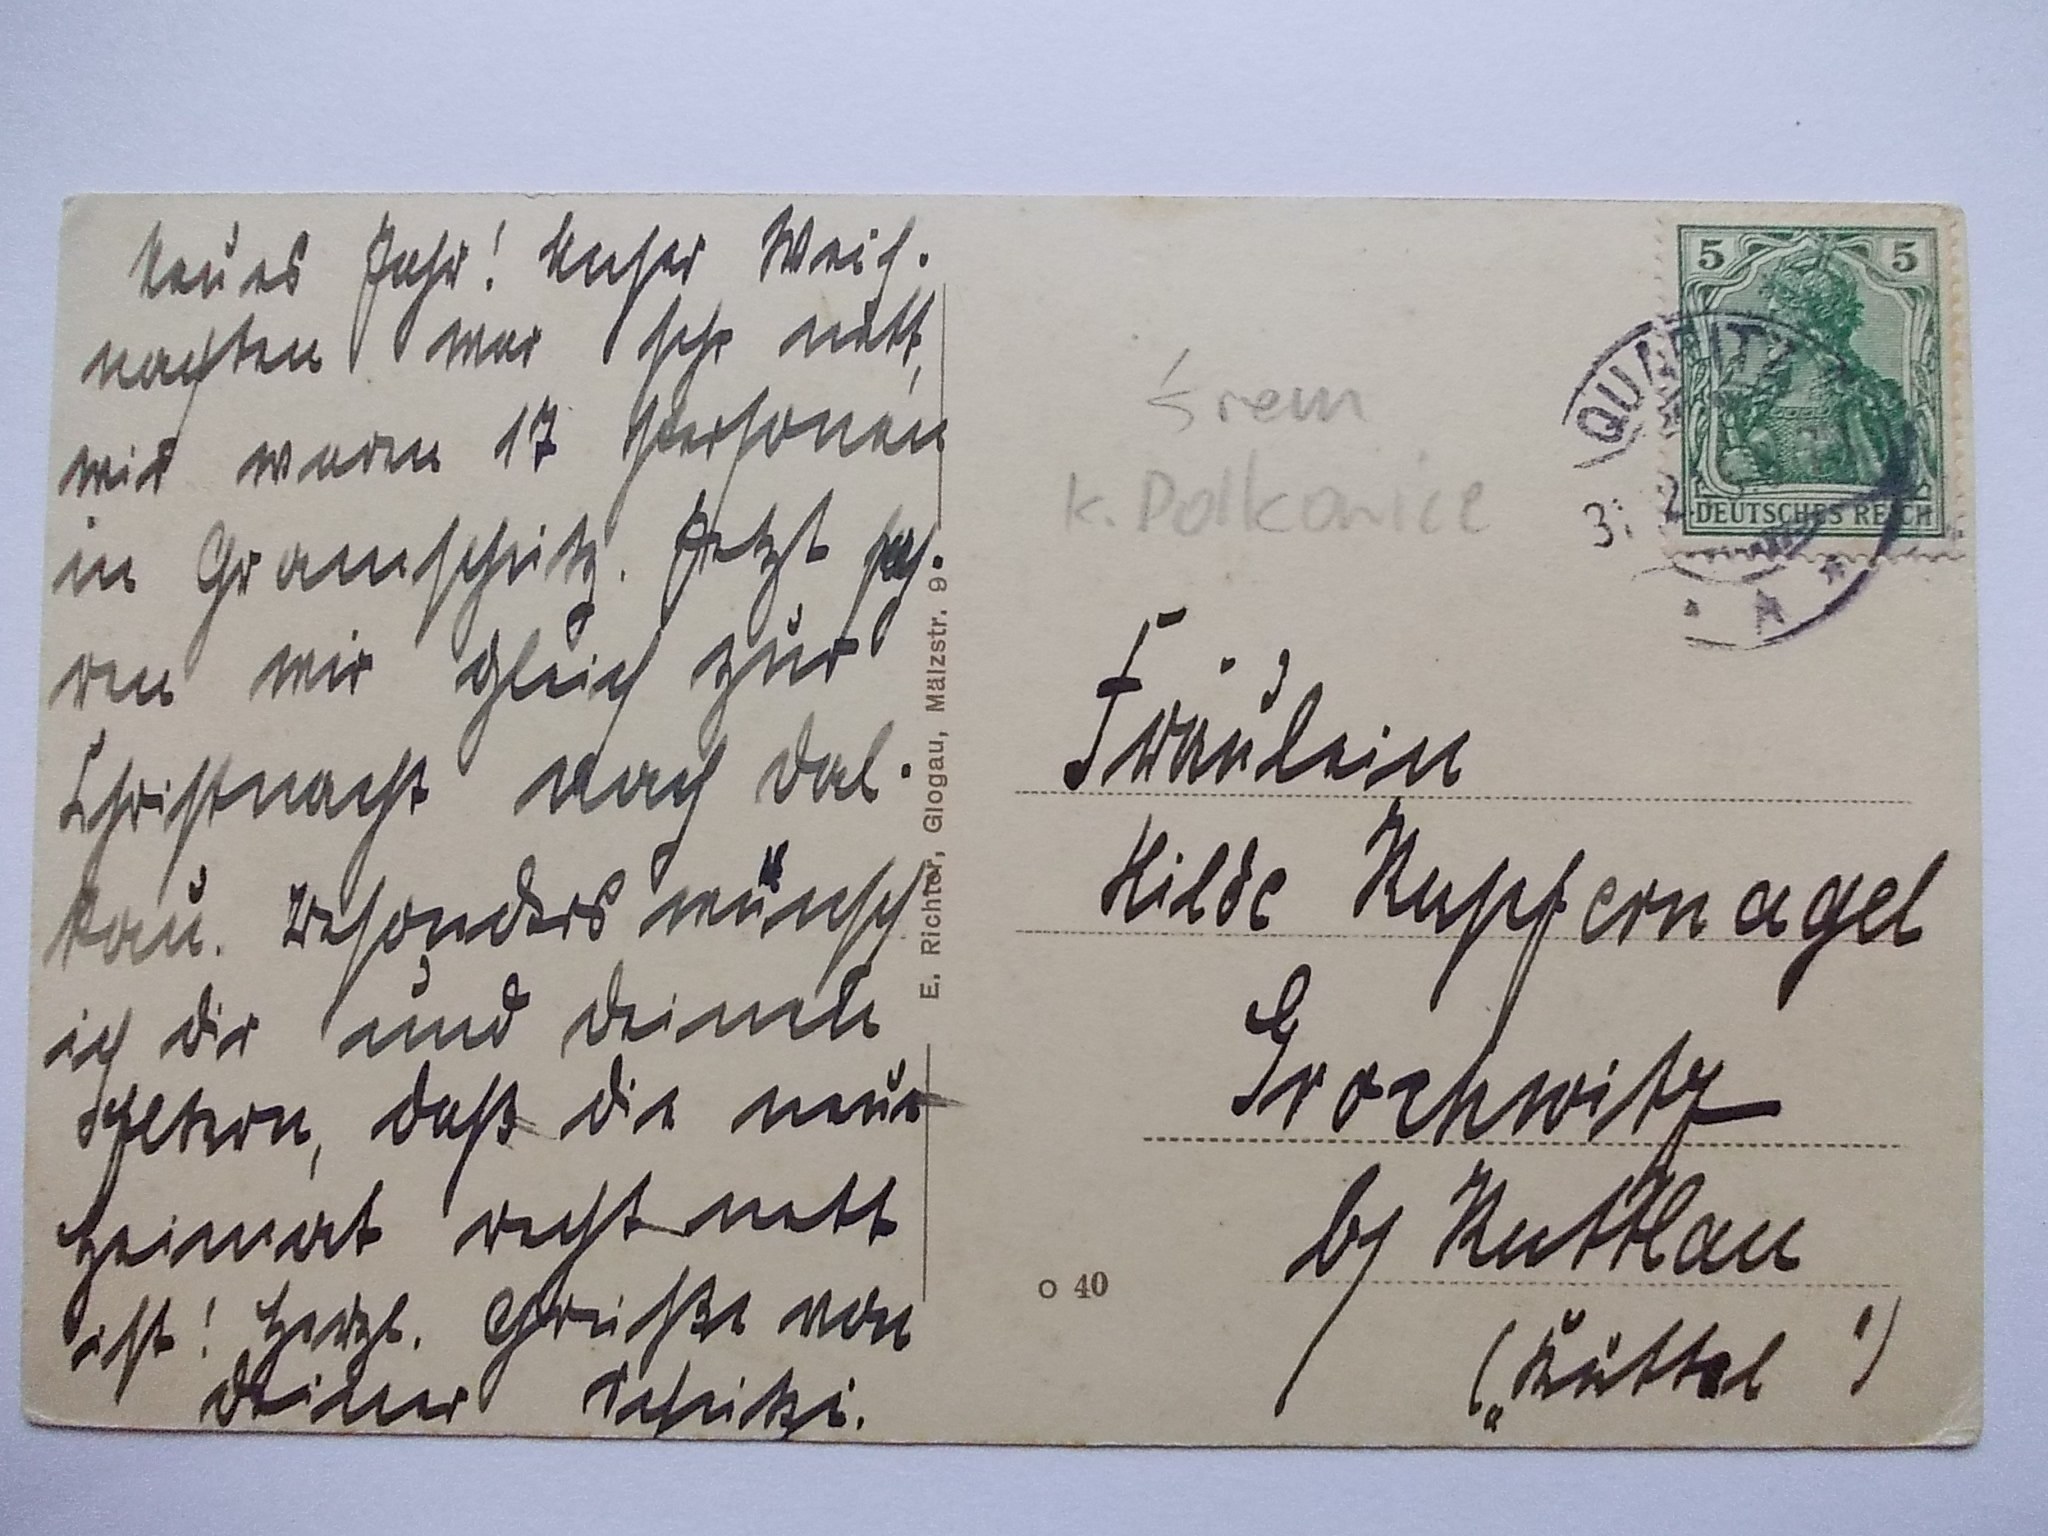 neues Jahr! Unser Weih-
nachten war sehr nett,
wir waren 17 Personen
in Gramschütz. Jetzt fah-
ren wir gleich zur
Christnacht nach Dal-
kau. Besonders wünsch
ich dir und deinen
Eltern, daß die neue
Heimat recht nett
ist! Herzl. Grüße von
deiner
E. Richter, Glogau, Mälzstr. 9
Śrem
k. Polkowice
5 5
DEUTSCHES REICH
QUARITZ
A
Fräulein
Hilde Kupfernagel
Grochwitz
b/ Kuttlau
("Küttel")
o 40